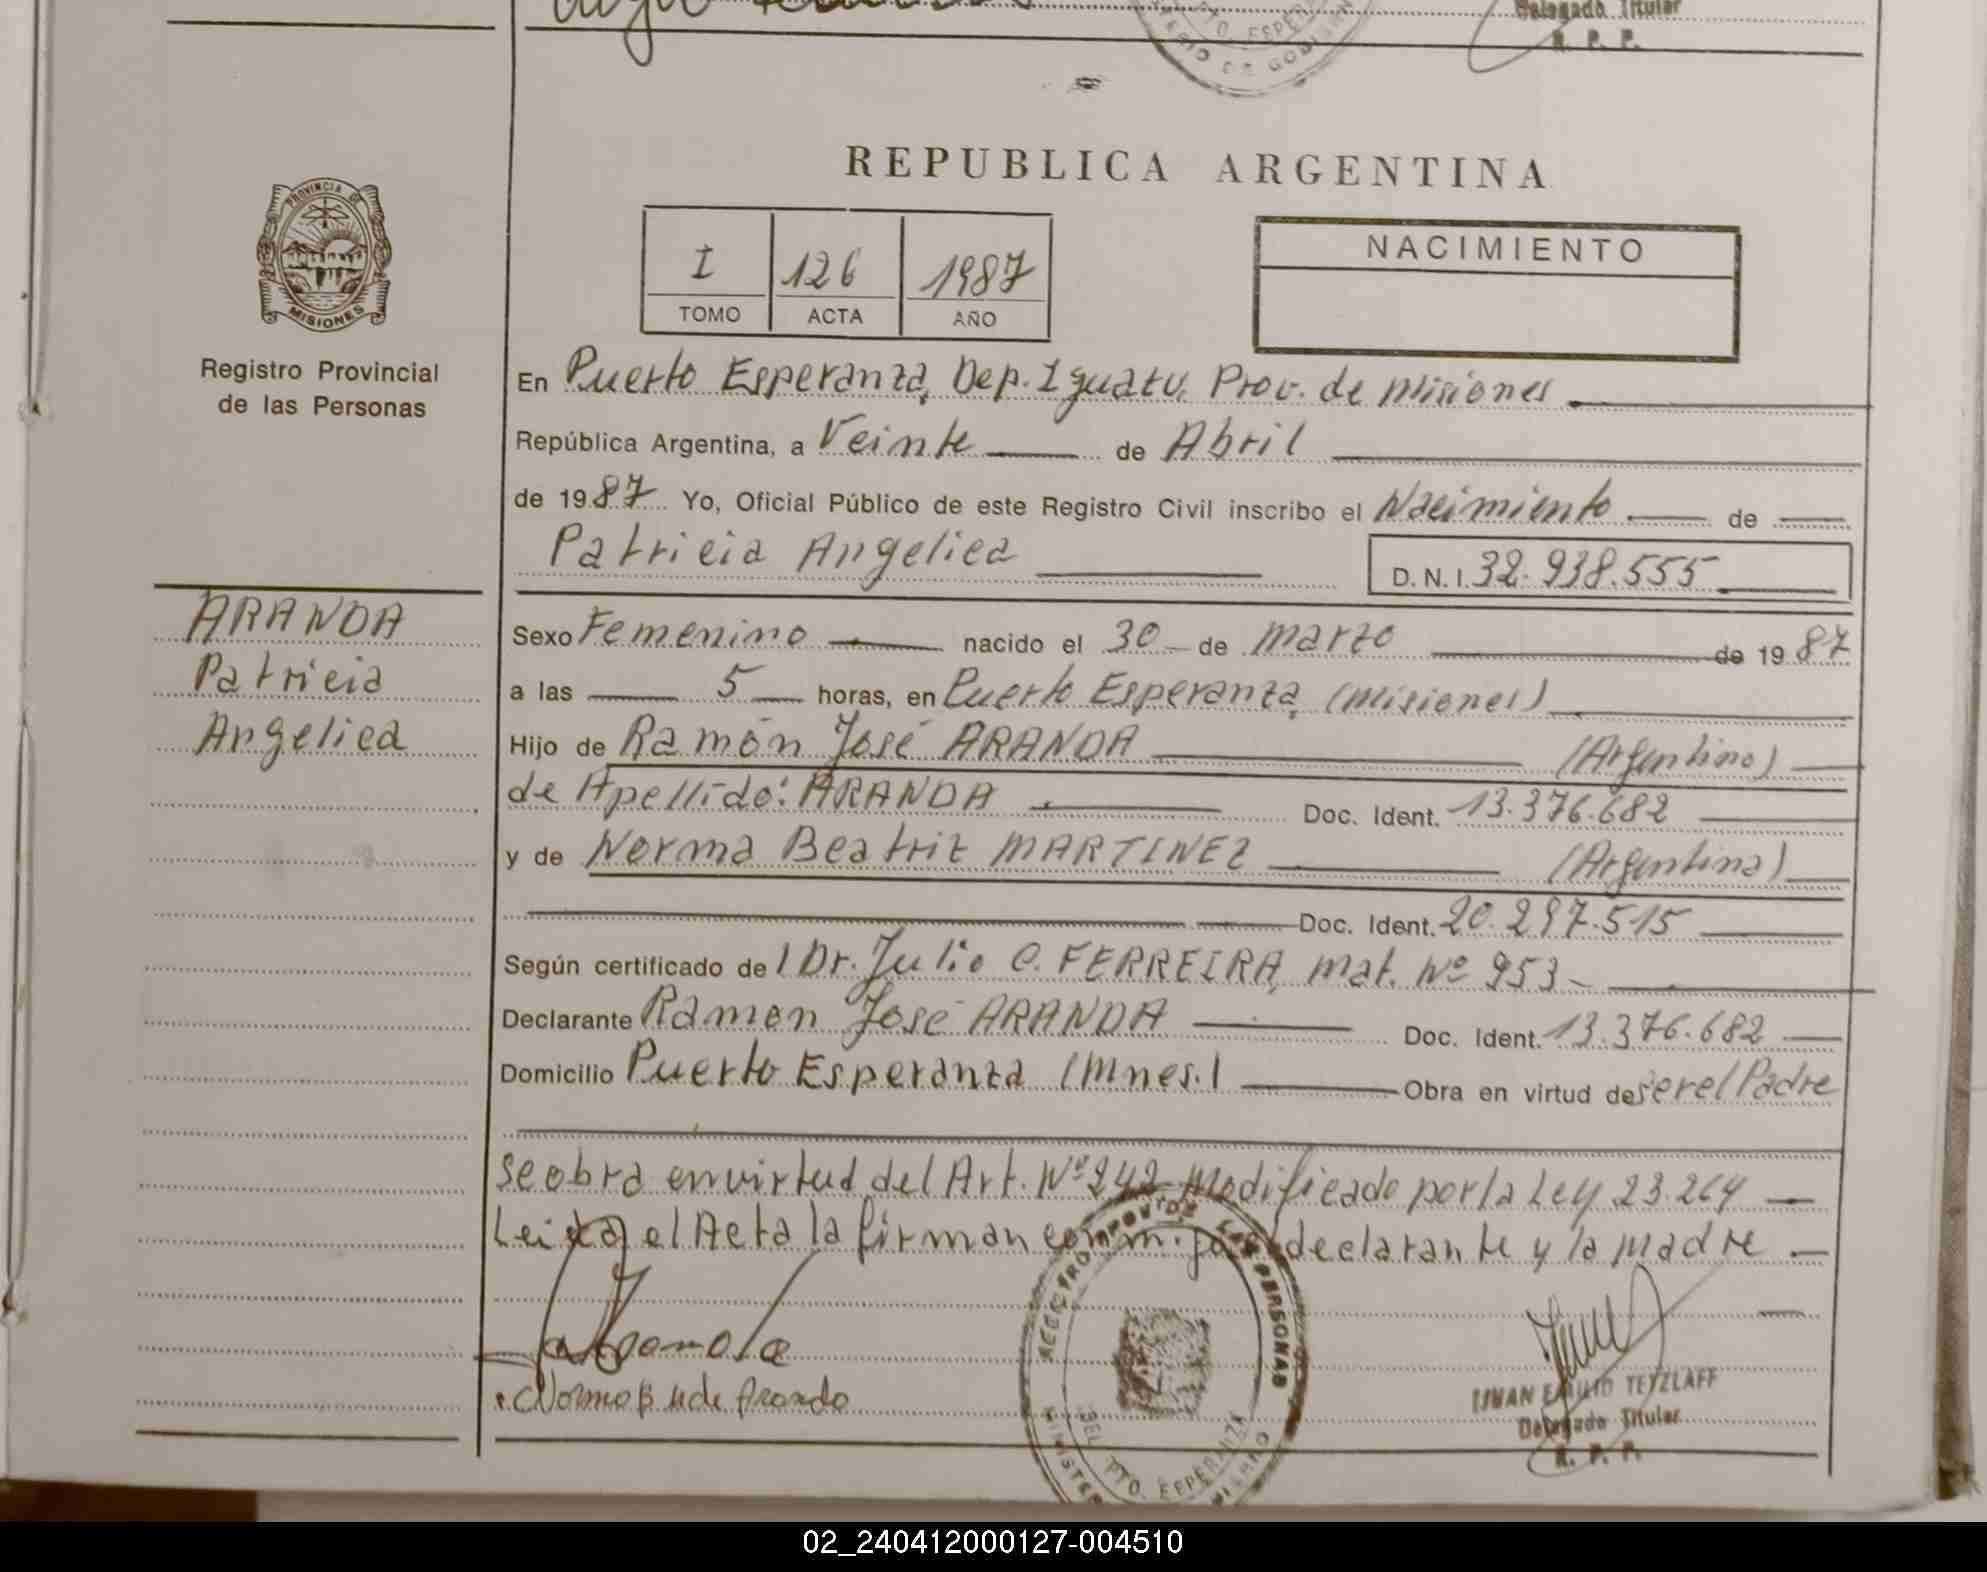 Delegado Titular
R. P. P.
REPUBLICA ARGENTINA
PROVINCIA DE
MISIONES
Registro Provincial
de las Personas
I 126 1987
TOMO ACTA AÑO
NACIMIENTO
En Puerto Esperanza, Dep. Iguazu, Prov. de Misiones
República Argentina, a Veinte de Abril
de 1987 Yo, Oficial Público de este Registro Civil inscribo el Nacimiento de
Patricia Angelica D.N.I. 32.938.555
ARANDA
Patricia
Angelica
Sexo Femenino nacido el 30 de Marzo de 1987
a las 5 horas, en Puerto Esperanza, (Misiones)
Hijo de Ramón José ARANDA (Argentino)
de Apellido: ARANDA Doc. Ident. 13.376.682
y de Norma Beatriz MARTINEZ (Argentina)
Doc. Ident. 20.297.515
Según certificado de l Dr. Julio C. FERREIRA, Mat. Nº 953-
Declarante Ramón José ARANDA Doc. Ident. 13.376.682
Domicilio Puerto Esperanza (Mnes.) Obra en virtud de ser el Padre
Se obra en virtud del Art. Nº 242 Modificado por la Ley 23.264
Leida el Acta la firman conmigo el declarante y la madre
Norma B M de Aranda
JUAN EMILIO TETZLAFF
Delegado Titular
R. P. P.
PTO. ESPERANZA
02_240412000127-004510